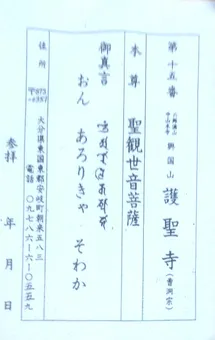 第十五番
六郷満山
中山本寺
興国山
護聖寺(曹洞宗)
本尊
聖観世音菩薩
御真言
おん あろりきゃ そわか
住所
〒873
-0357
大分県東国東郡安岐町朝来五八三
電話 〇九七八-六-六-〇五五九
参拝 年 月 日